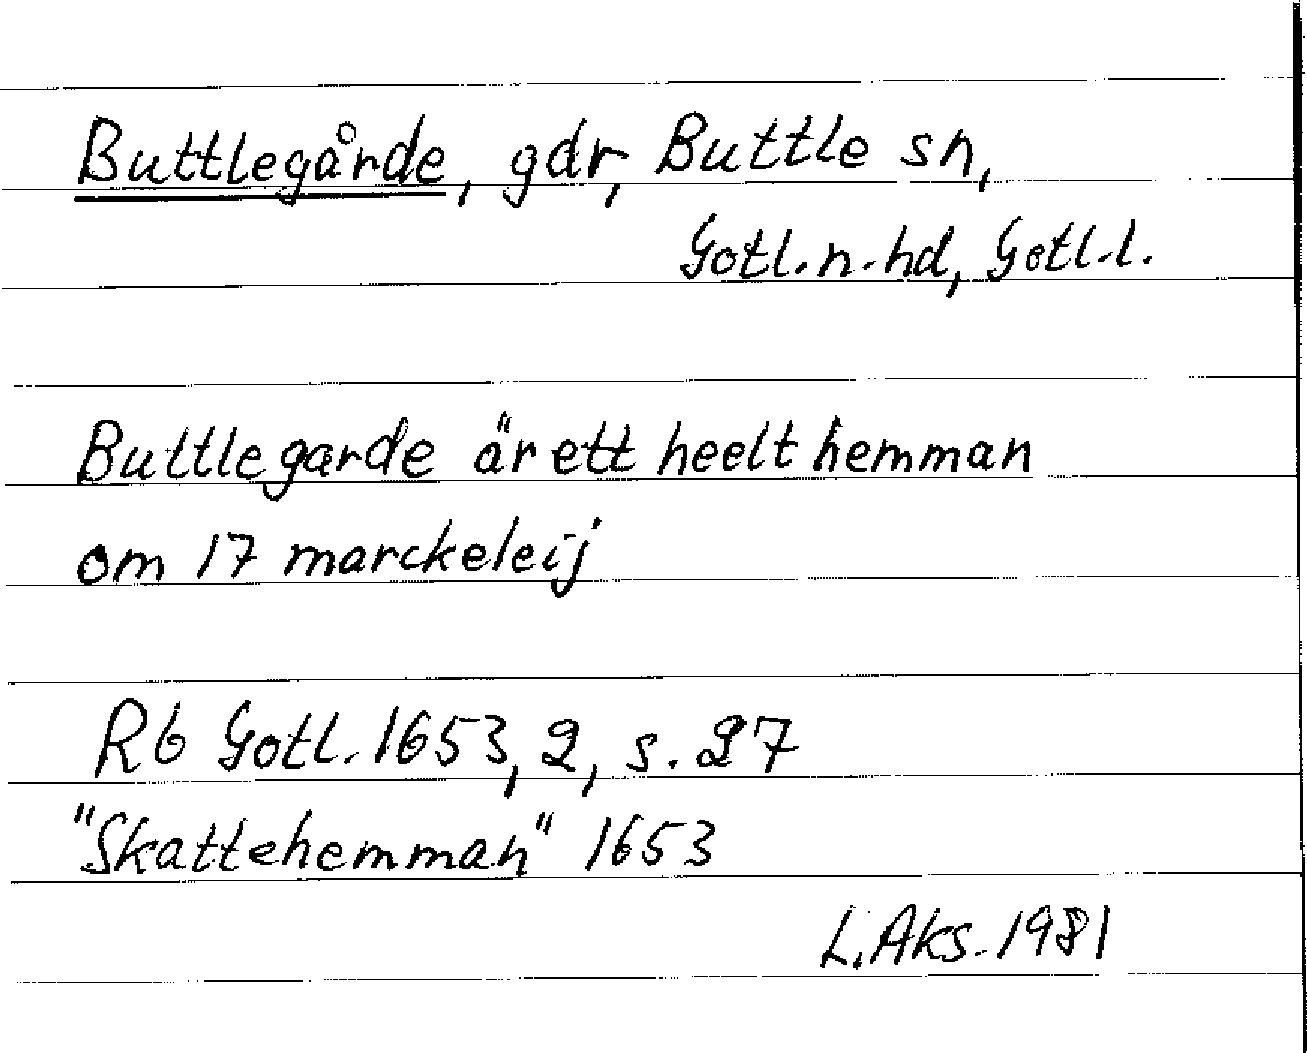 Buttlegårde, gdr, Buttle sn,
Gotl. n. hd, Gotl. l.
Buttlegarde är ett heelt hemman
om 17 marckeleij
Rb Gotl. 1653, 2, s. 27
"Skattehemman" 1653
L. Aks. 1981